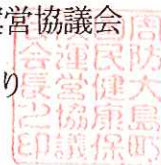 営協議会
り
周防大島町
国民健康保
険運営協議
会会長之印